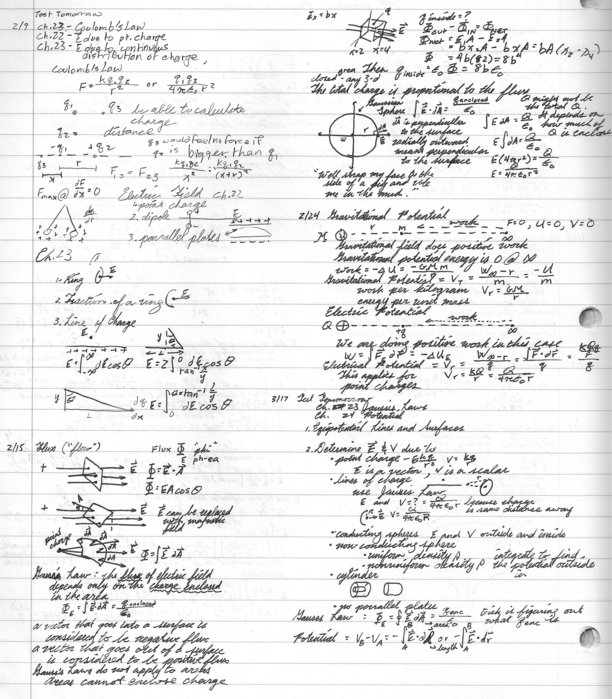 Test Tomorrow
2/9 Ch. 23 - Coulomb's Law
Ch. 22 - E due to pt. charge
Ch. 23 - E due to continuous
distribution of charge,
Coulomb's Law
F = kq₁q₂/r² or q₁q₂/4πε₀r²
q₁ . . q₃ be able to calculate
charge
q₂ . distance
q₃ would feel no force if
q₂ is bigger than q₁
-q₁ +q₂ q₃
x r
F₁₃ = F₂₃
Fmax @ dF/dx = 0
Electric Field ch. 22
1. point charge
2. dipole
3. parallel plates
Ch. 23
1. Ring E
2. Fraction of a ring E
3. Line of Charge
E = ∫ dE cos θ E = 2∫ dE cos θ
E = ∫ dE cos θ
2/15 Flux ("flow") Flux Φ "phi"
+ E Φ = E · A
Φ = EA cos θ
+ E E can be replaced
with magnetic
field
point charge dA Φ = ∫ E · dA
Gauss's Law: the flux of electric field
depends only on the charge enclosed
in the area
Φ_E = ∫ E · dA = q enclosed/ε₀
a vector that goes into a surface is
considered to be negative flux
a vector that goes out of a surface
is considered to be positive flux
Gauss's Laws do not apply to areas
Areas cannot enclose charge
E_x = bx q inside = ?
Φout - Φin = Φnet
x=2 x=4 = bx₂A - bx₁A = bA(x₂ - x₁)
given then q inside = ε₀Φ = 8bε₀
closed any 3-d
The total charge is proportional to the flux
Gaussian
Sphere ∫ E · dA = q enclosed/ε₀
It is perpendicular
to the surface
radially outward
means perpendicular
to the surface
∫ E dA = Q/ε₀
E ∫ dA = Q/ε₀
E(4πr²) = Q/ε₀
E = Q/4πε₀r²
Q might not be
the total Q.
It depends on
how much of
Q is enclosed
"We'll strap my face to the
side of a pig and role
me in the mud."
2/24 Gravitational Potential
M r m work ∞ F=0, U=0, V=0
Gravitational field does positive work
Gravitational potential energy is 0 @ ∞
work = -ΔU = -GMm/r
Gravitational Potential = V_r = W∞-r/m = -U/m
work per kilogram V_r = GM/r
energy per unit mass
Electric Potential
Q ⊕ work
+q ∞
We are doing positive work in this case
W = ∫ F · dr = -ΔU_E
Electrical Potential = V_r = W∞-r/q = ∫F·dr/q
This applies for V_r = kQ/r = Q/4πε₀r
point charges
3/17 Test Tomorrow
Ch. 23 Gauss's Laws
Ch. 24 Potential
1. Equipotential Lines and Surfaces
2. Determine E & V due to
• point charge - E = kq/r² V = kq/r
E is a vector, V is a scalar
• lines of charge
use Gauss's Law
E and V = ? = Q/4πε₀r because charge
is same distance away
V = Q/4πε₀r
• conducting spheres E and V outside and inside
• non conducting sphere
• uniform density ρ integrate to find
• nonuniform density ρ the potential outside
• cylinder or in
• parallel plates
Gauss's Law: Φ_E = ∮ E · dA = q enc/ε₀ Trick is figuring out
area what q enc is
Potential = V_B - V_A = -∫ E · dR or -∫ E · dr
length